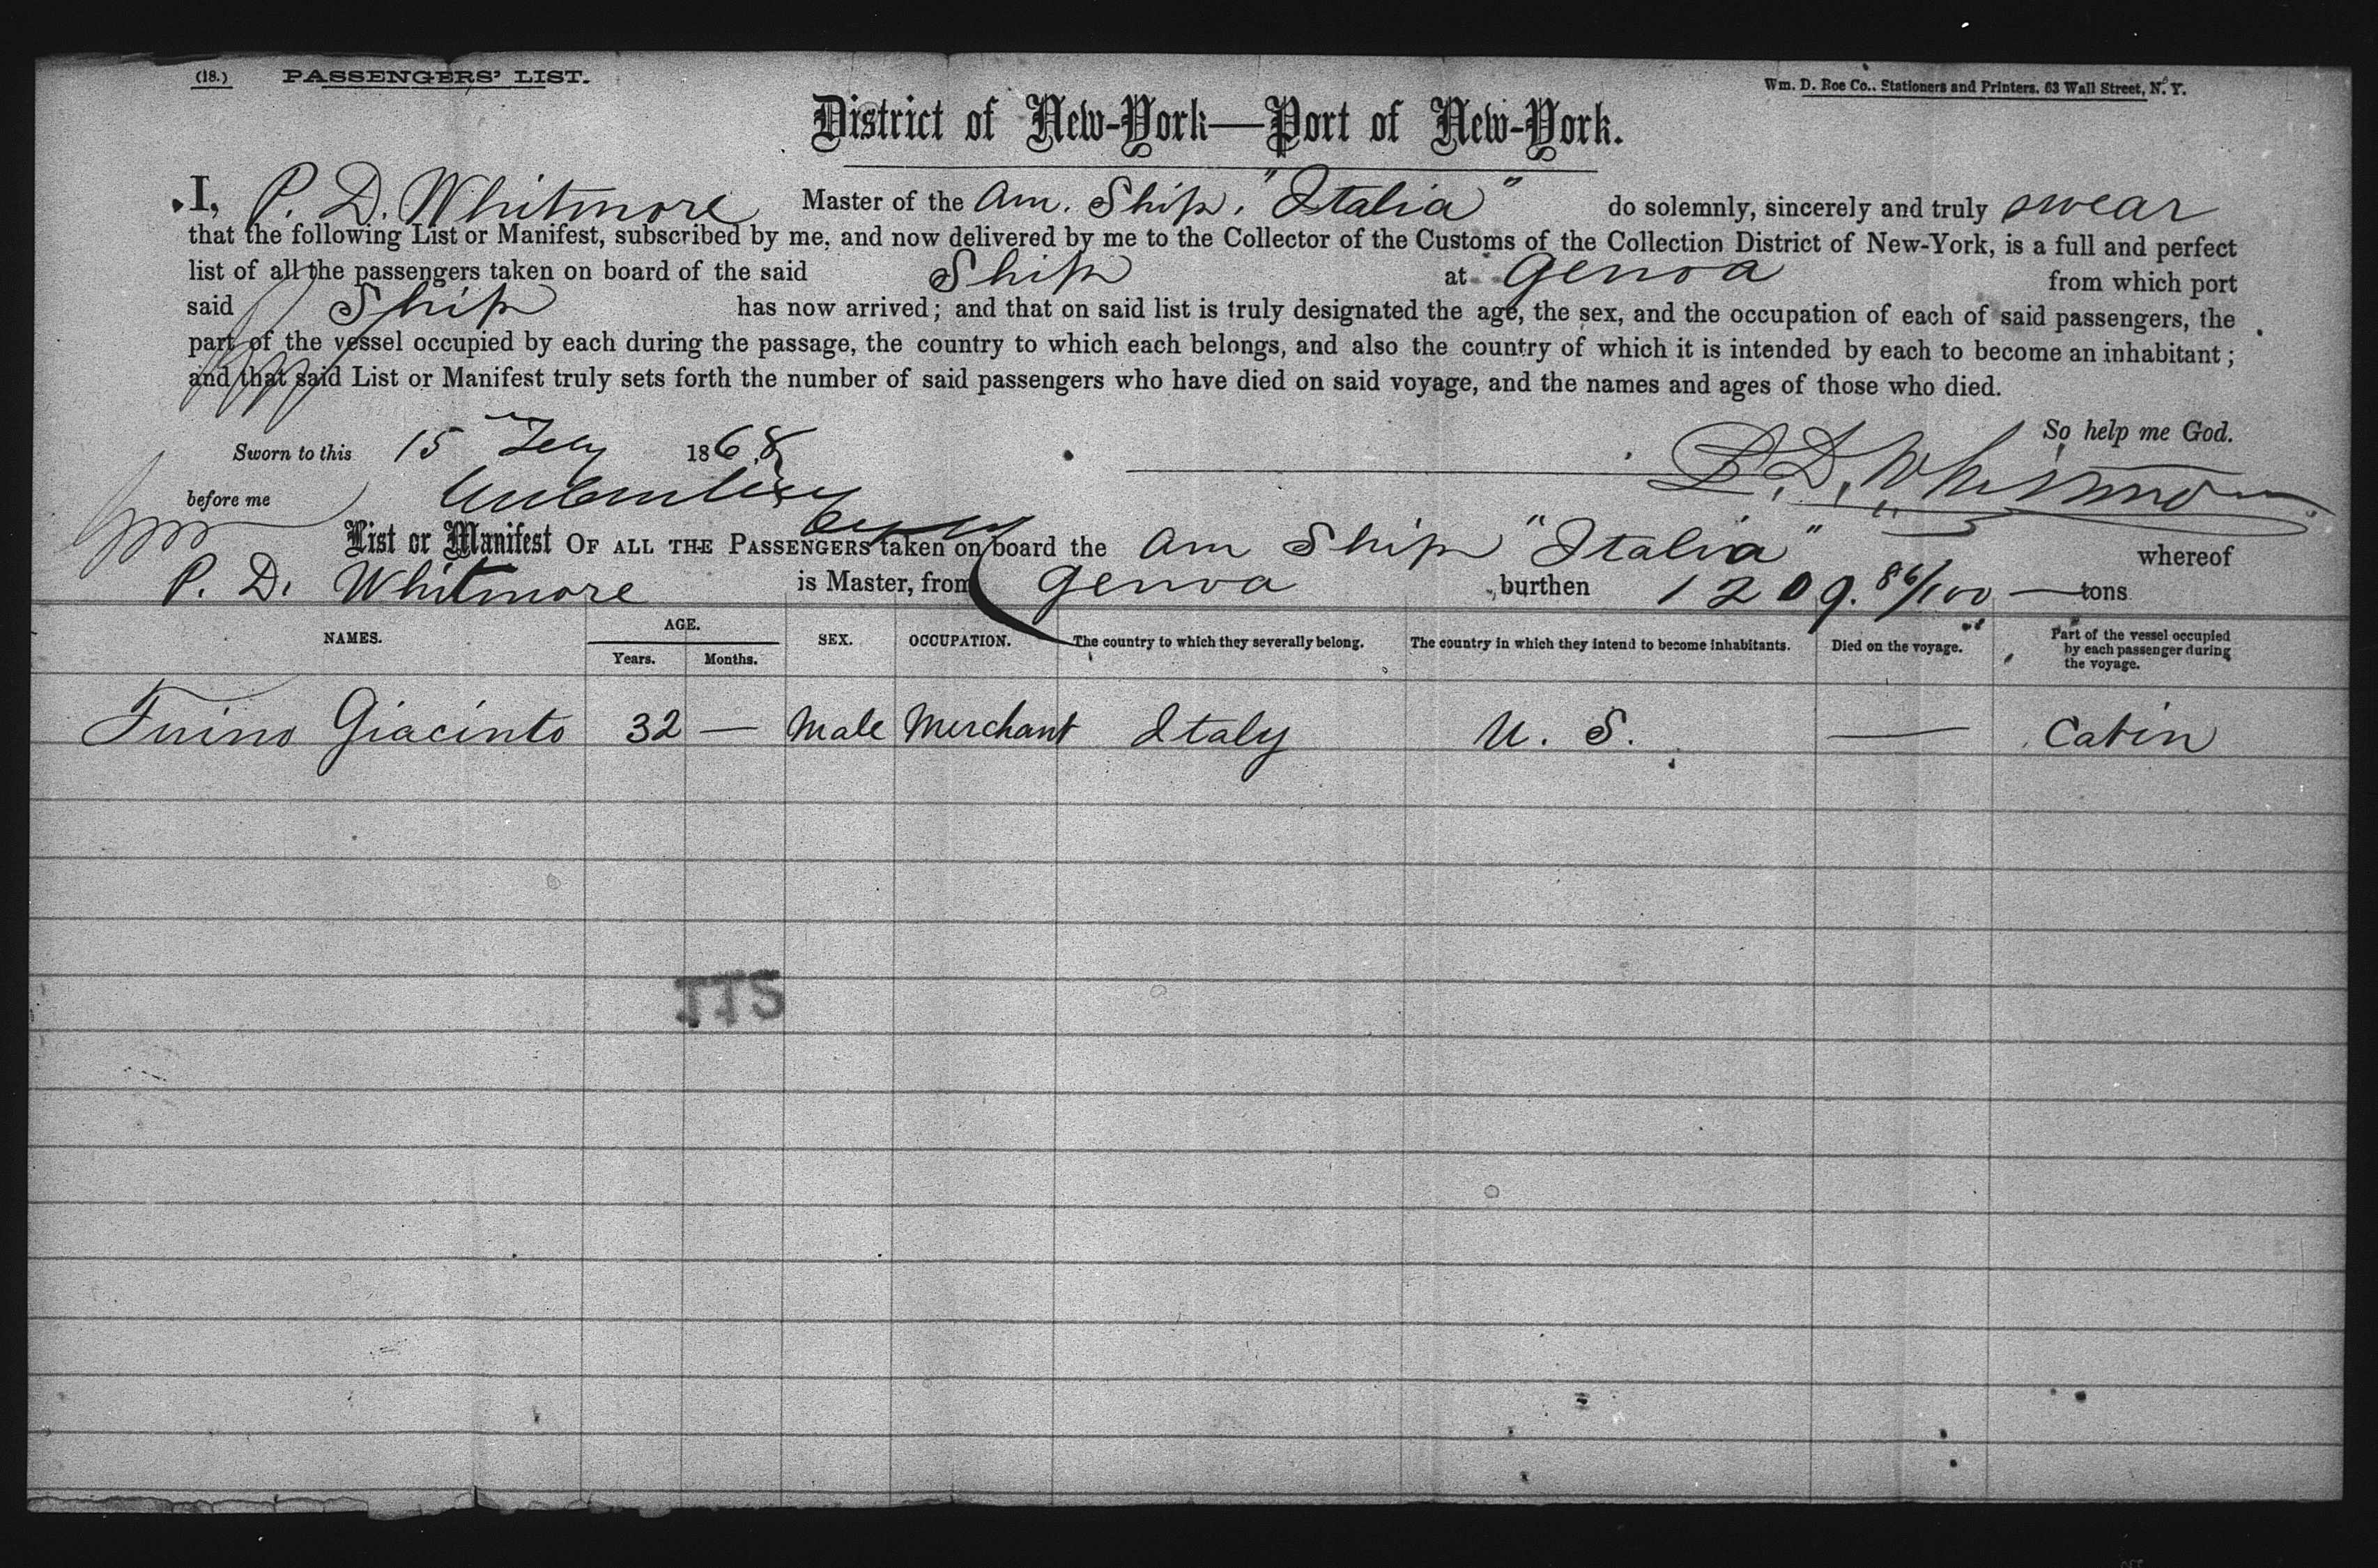 (18.) PASSENGERS' LIST.
Wm. D. Roe Co., Stationers and Printers, 63 Wall Street, N. Y.
District of New-York—Port of New-York.
I, P. D. Whitmore Master of the Am. Ship. "Italia" do solemnly, sincerely and truly swear
that the following List or Manifest, subscribed by me, and now delivered by me to the Collector of the Customs of the Collection District of New-York, is a full and perfect
list of all the passengers taken on board of the said Ship at Genoa from which port
said Ship has now arrived; and that on said list is truly designated the age, the sex, and the occupation of each of said passengers, the
part of the vessel occupied by each during the passage, the country to which each belongs, and also the country of which it is intended by each to become an inhabitant;
and that said List or Manifest truly sets forth the number of said passengers who have died on said voyage, and the names and ages of those who died.
So help me God.
Sworn to this 15 Feby 1868
P. D. Whitmore
before me
List or Manifest OF ALL THE PASSENGERS taken on board the Am Ship "Italia" whereof
P. D. Whitmore is Master, from Genoa burthen 1209.86/100 — tons
NAMES. AGE. SEX. OCCUPATION. The country to which they severally belong. The country in which they intend to become inhabitants. Died on the voyage. Part of the vessel occupied by each passenger during the voyage.
Years. Months.
Giacinto 32 — Male Merchant Italy U. S. — Cabin